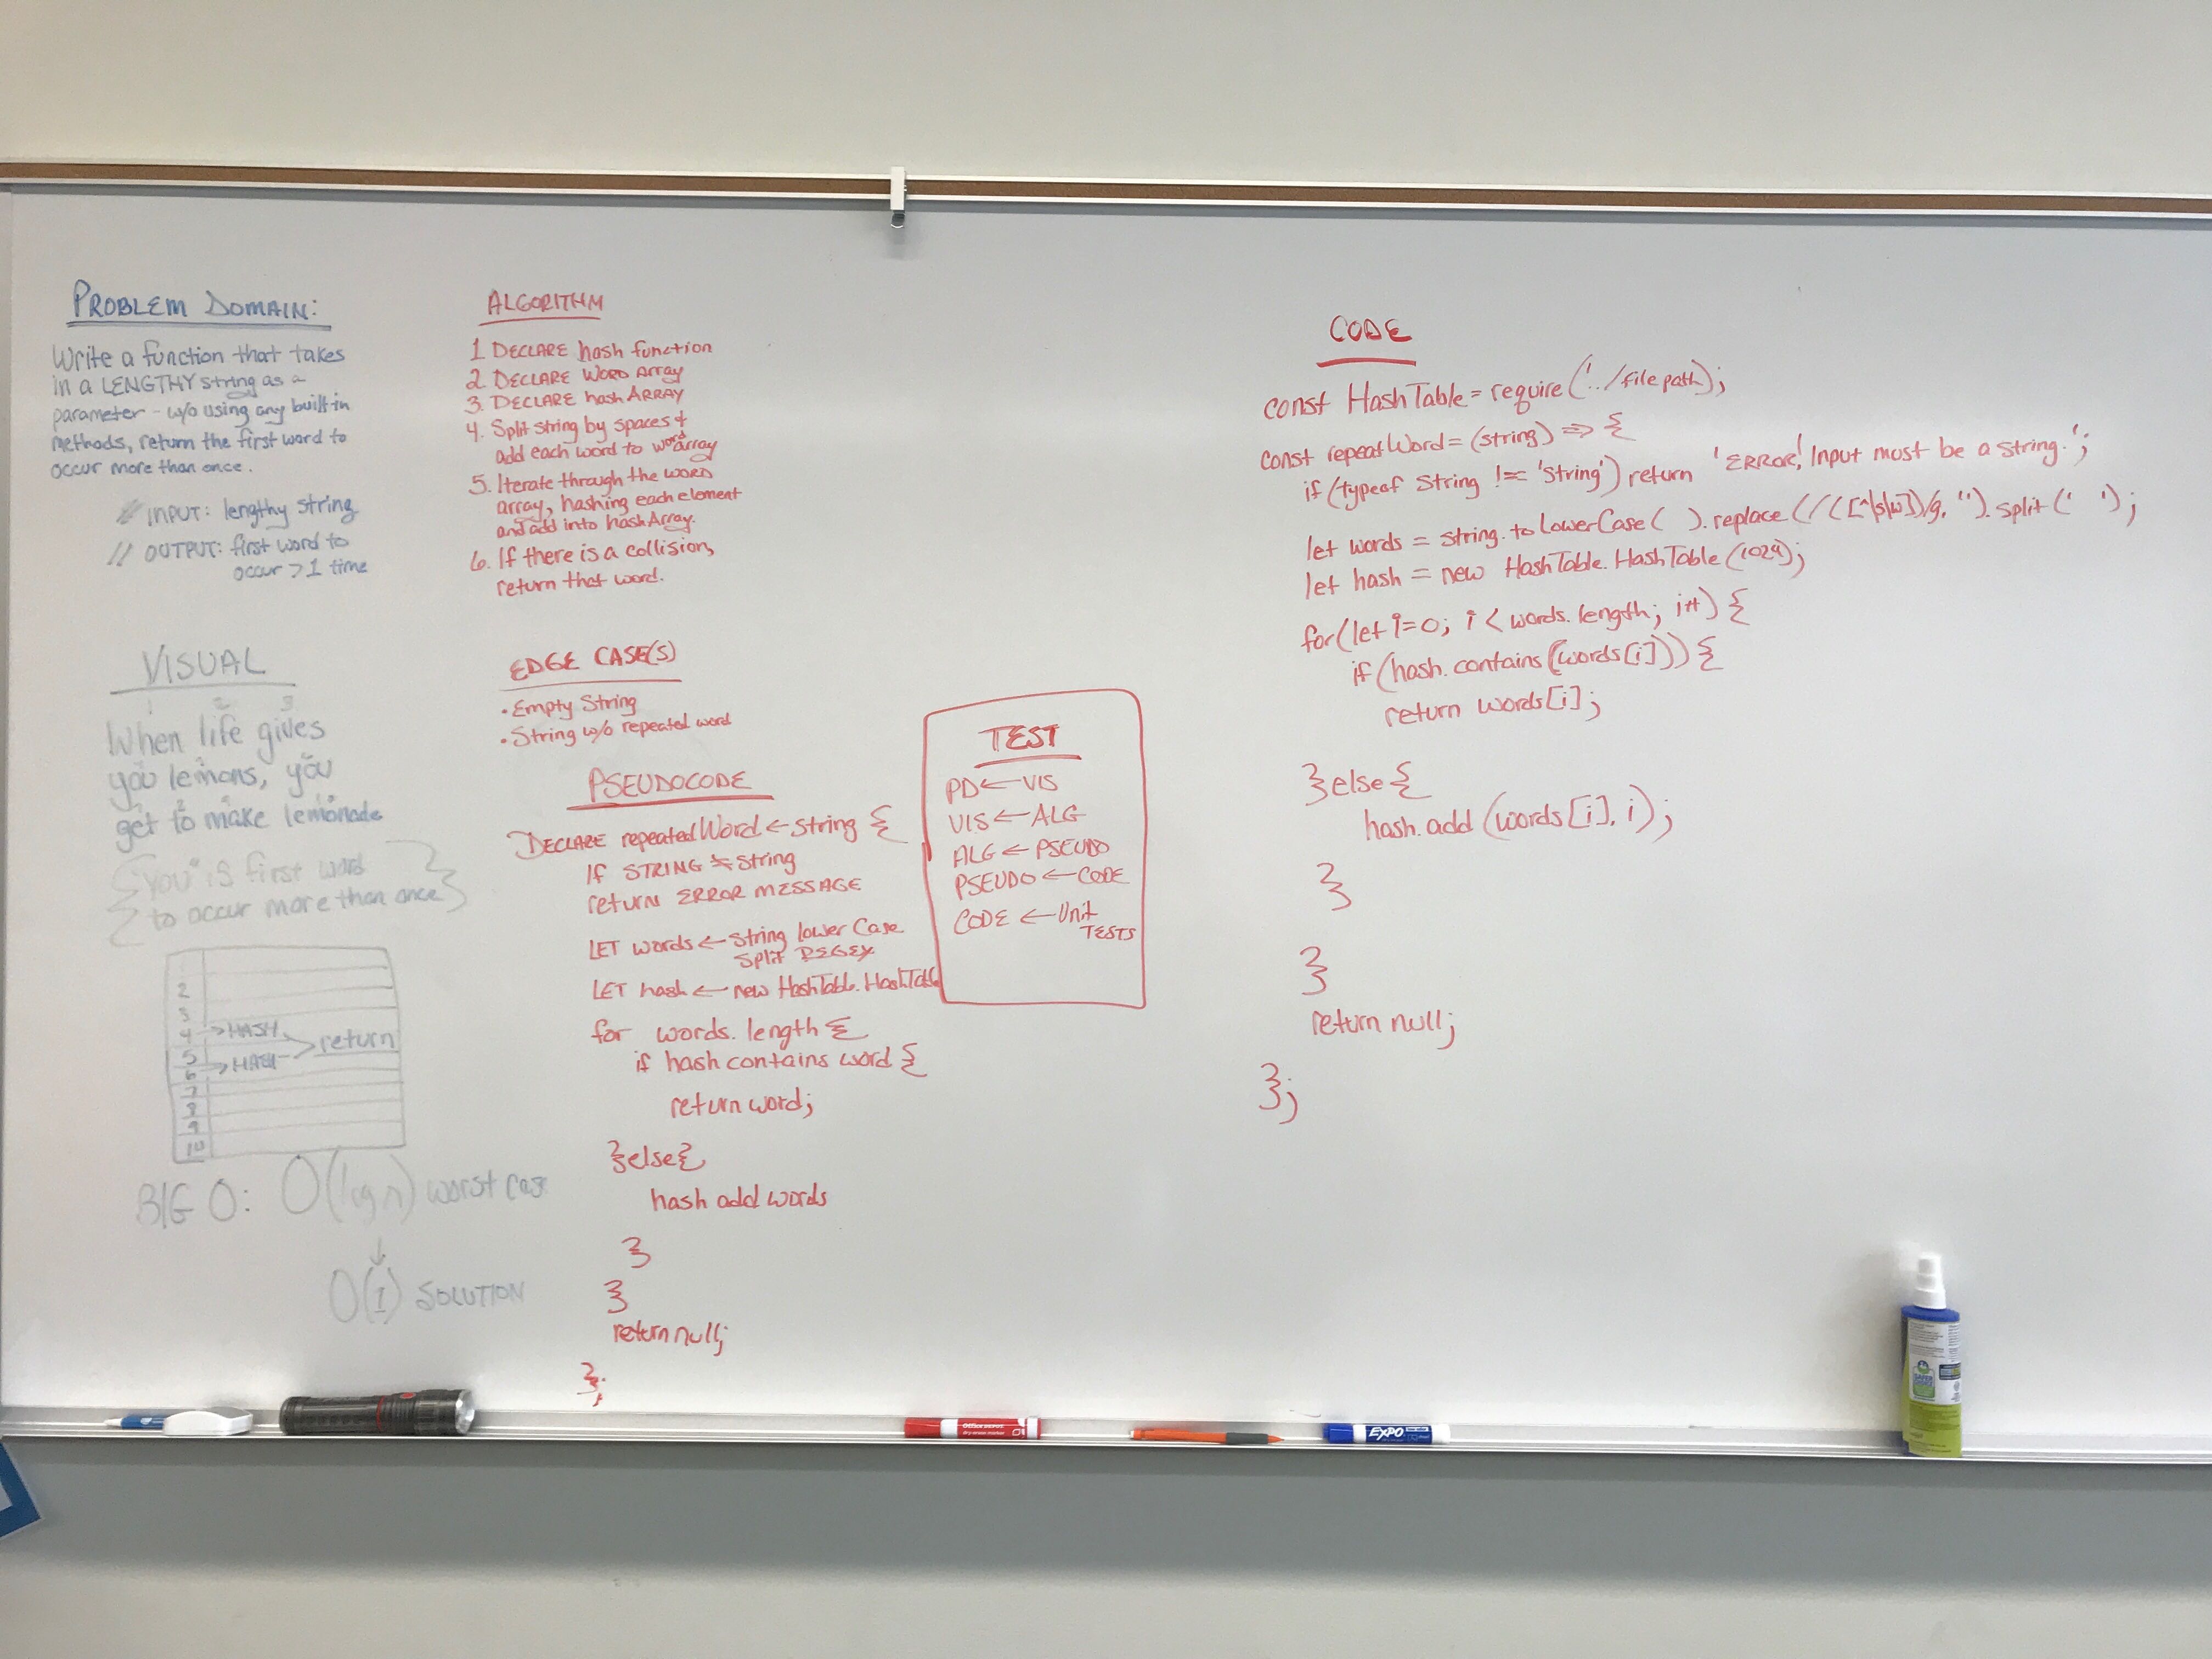 PROBLEM DOMAIN:
Write a function that takes
in a LENGTHY string as a
parameter - w/o using any built in
methods, return the first word to
occur more than once.
INPUT: lengthy string
// OUTPUT: first word to
occur >1 time
VISUAL
1 2 3
When life gives
you lemons, you
get to make lemonade
{"you" is first word
to occur more than once}
1
2
3
4 → HASH
return
5
6 → HASH
7
8
9
10
BIG O: O(log n) worst case
↓
O(1) SOLUTION
ALGORITHM
1 DECLARE hash function
2. DECLARE WORD Array
3. DECLARE hash ARRAY
4. Split string by spaces &
add each word to word array
5. Iterate through the WORD
array, hashing each element
and add into hashArray.
6. If there is a collision,
return that word.
EDGE CASE(S)
• Empty String
• String w/o repeated word
PSEUDOCODE
DECLARE repeatedWord ← string {
If STRING ≠ string
return ERROR MESSAGE
LET words ← string lower Case
Split REGEX
LET hash ← new HashTable.HashTable
for words.length {
if hash contains word {
return word;
}else{
hash add words
}
}
return null;
};
TEST
PD ← VIS
VIS ← ALG
ALG ← PSEUDO
PSEUDO ← CODE
CODE ← Unit
TESTS
CODE
const HashTable = require('../filepath);
const repeatWord = (string) => {
if (typeof String !== 'string') return 'ERROR! Input must be a string.';
let words = string.toLowerCase( ).replace(/([^\s\w])/g, '').split(' ');
let hash = new HashTable.HashTable(1024);
for(let i=0; i < words.length; i++) {
if (hash.contains(words[i])) {
return words[i];
}else{
hash.add(words[i], i);
}
}
return null;
};
Office DEPOT
dry erase marker
EXPO